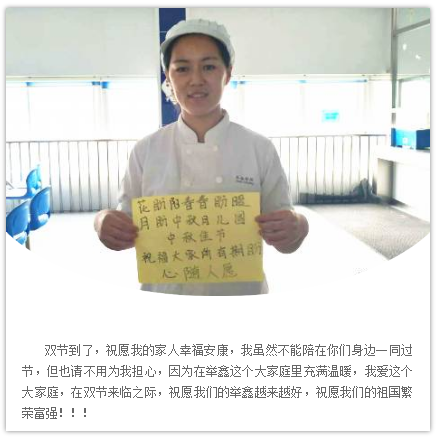 花盼阳雪盼暖
月盼中秋月儿圆
中秋佳节
祝福大家所有期盼
心随人愿
双节到了，祝愿我的家人幸福安康，我虽然不能陪在你们身边一同过
节，但也请不用为我担心，因为在举鑫这个大家庭里充满温暖，我爱这个
大家庭，在双节来临之际，祝愿我们的举鑫越来越好，祝愿我们的祖国繁
荣富强！！！